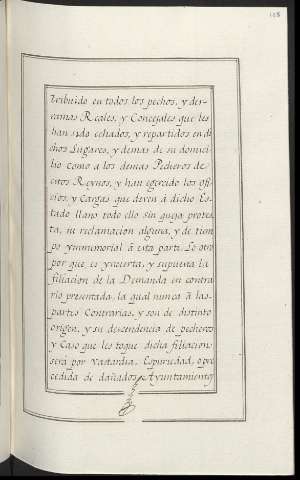 tribuido en todos los pechos, y der-
ramas Reales, y Concejales que les
han sido echados, y repartidos en di
chos Lugares, y demas de su domici
lio como a los demas Pecheros de
estos Reynos, y han egercido los ofi
cios, y Cargas que deven á dicho Es-
tado llano todo ello sin queja protes
ta, ni reclamacion alguna, y de tiem
po ynmemorial á esta parte. Lo otro
por que es yncierta, y supuesta la
filiacion de la Demanda en contra
rio presentada, la qual nunca á las
partes Contrarias, y son de distinto
origen, y su descendencia de pecheros
y Caso que les toque dicha filiacion
será por Vastardia, Espuriedad, o pro
cedida de dañados Ayuntamientos